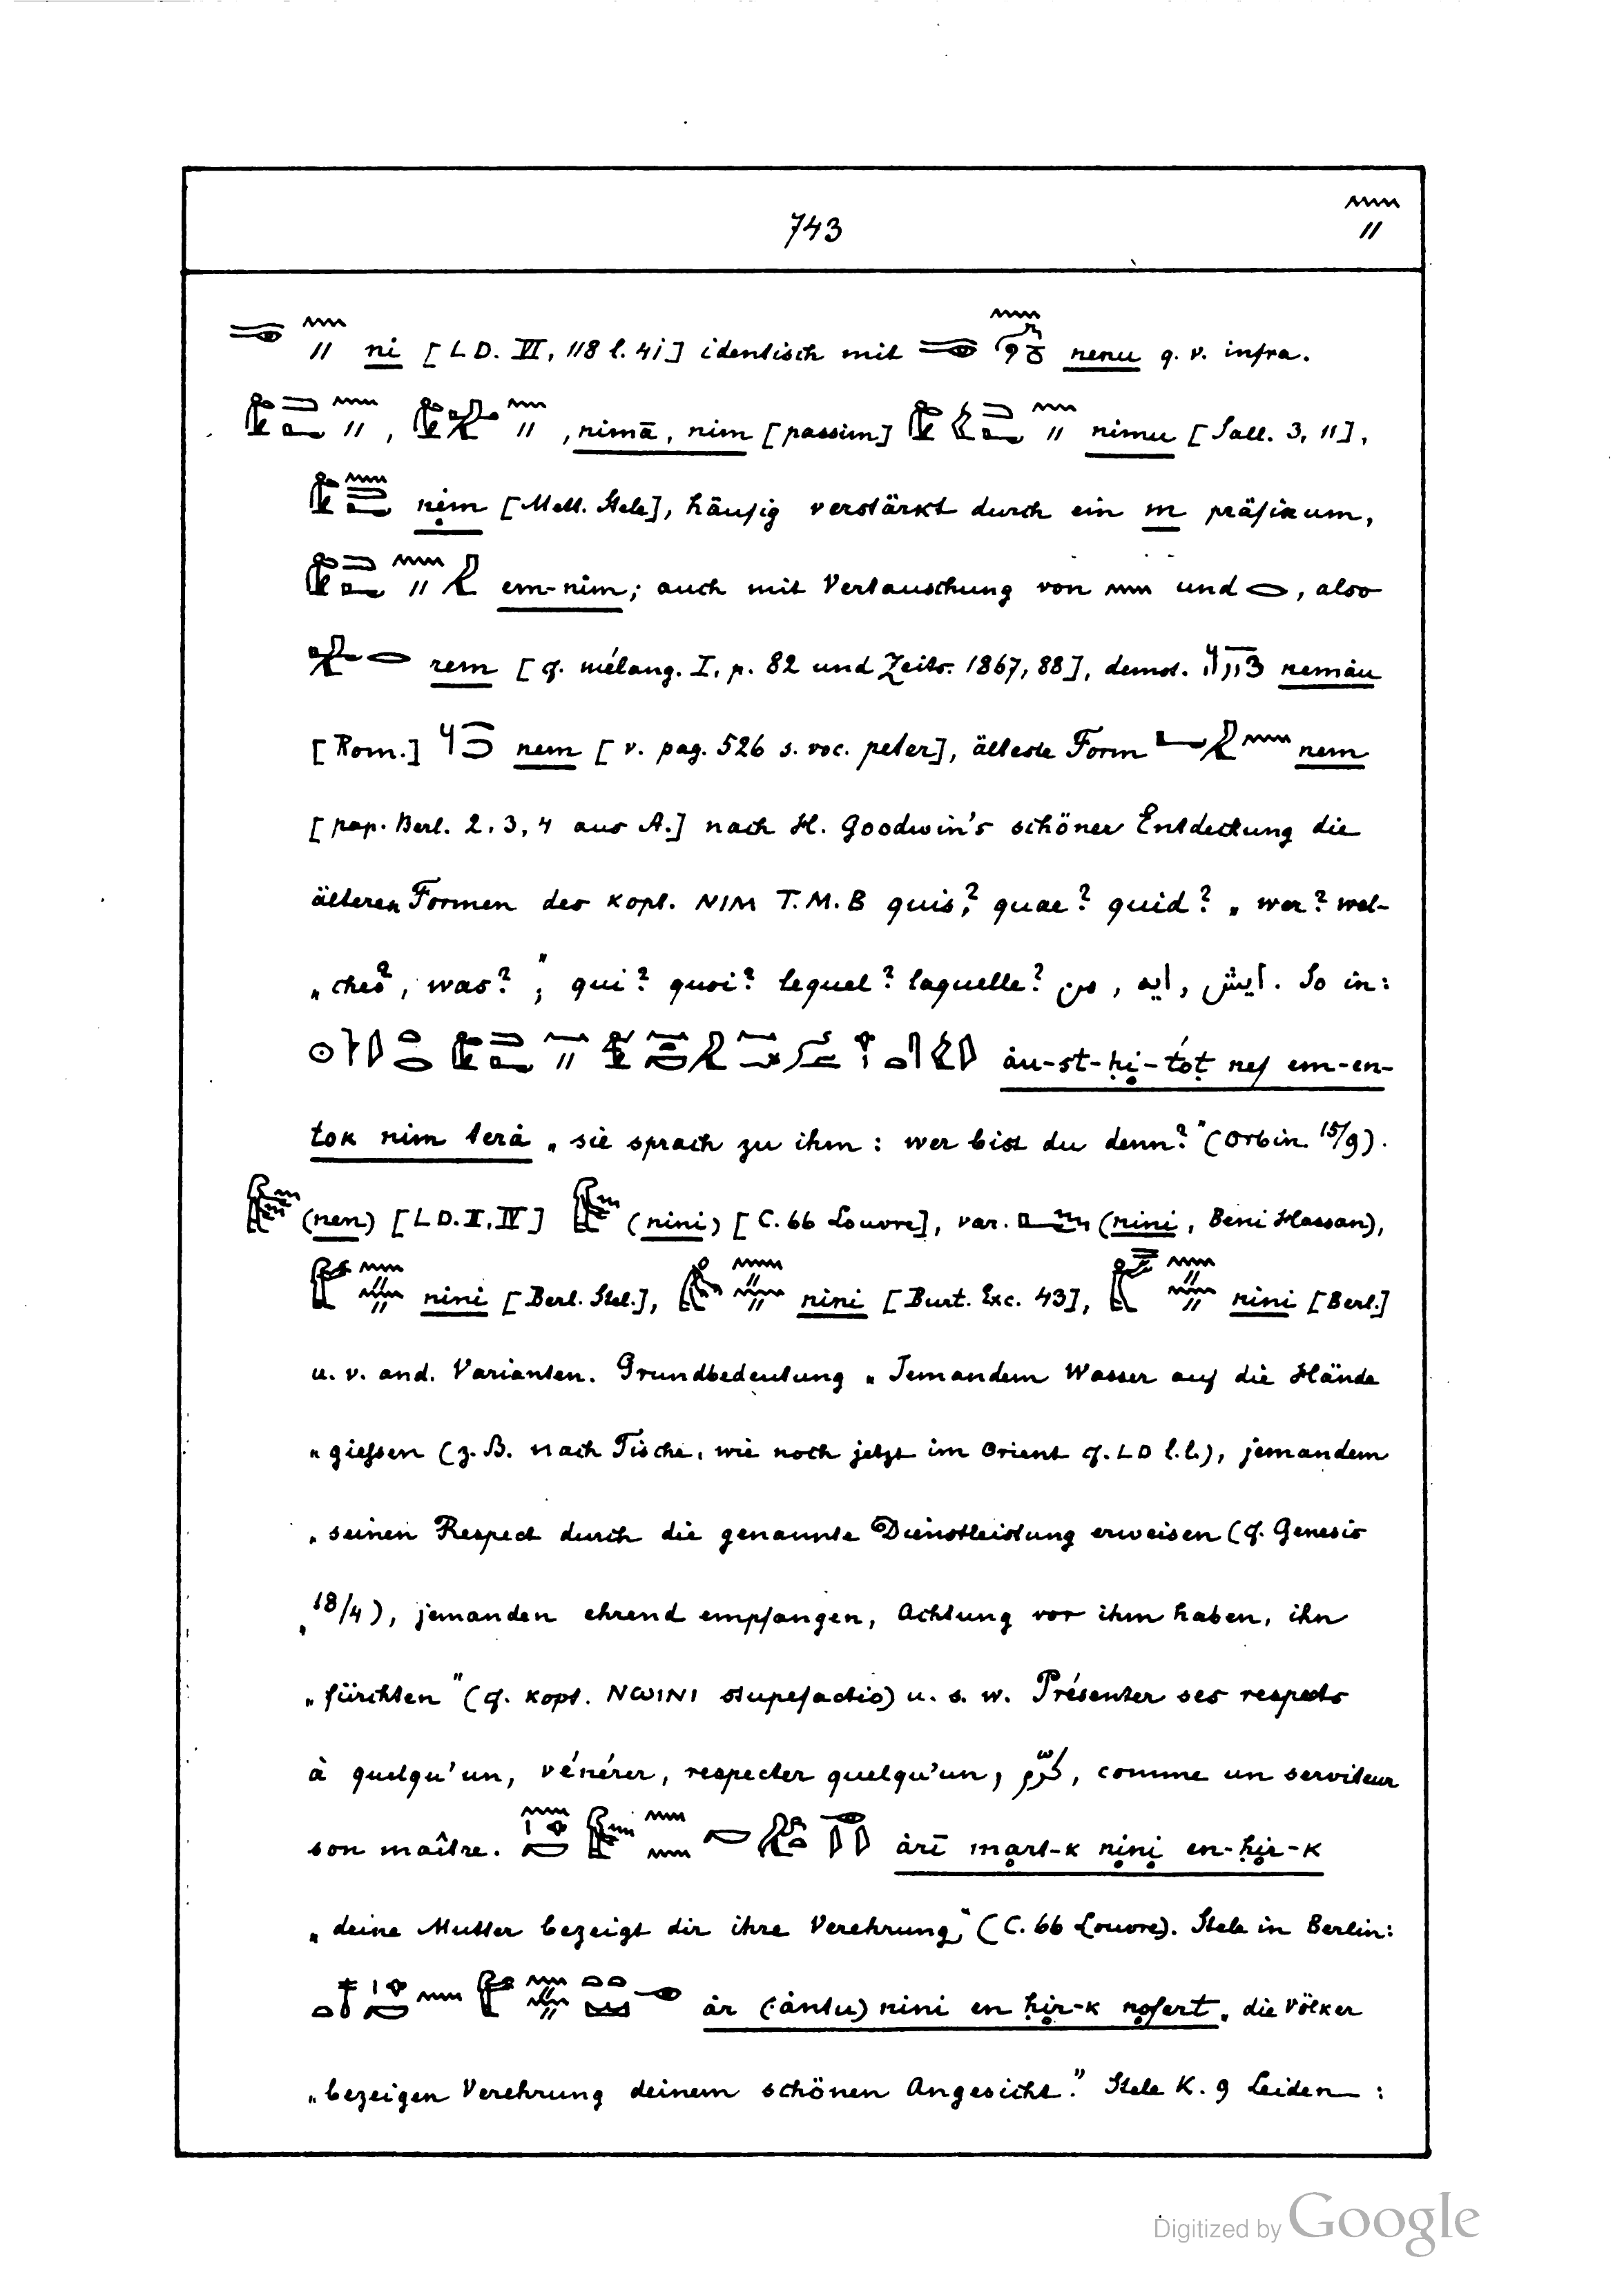 743 𓈖 //
𓈖 // ni [LD. VI, 118 l. 41] identisch mit nenu q. v. infra.
, , nimā, nim [passim] nimu [Sall. 3, 11],
nim [Mett. Stele], häufig verstärkt durch ein m präfixum,
em-nim; auch mit Vertauschung von 𓈖 und 𓂋, also
rem [cf. mélang. I, p. 82 und Zeits. 1867, 88], demot. nemȧu
[Rom.] nem [v. pag. 526 s. voc. peter], älteste Form nem
[pap. Berl. 2, 3, 4 aus A.] nach H. Goodwin's schöner Entdeckung die
älteren Formen des kopt. NIM T. M. B quis? quae? quid? „wer? wel-
„ches?, was?", qui? quoi? lequel? laquelle? من , ايه , ايش. So in:
ȧu-st-ḥi-tót nef em-en-
tok nim terȧ „sie sprach zu ihm: wer bist du denn?" (Orbin. 15/9).
(nen) [LD. II, IV] (nini) [C. 66 Louvre], var. (nini, Beni Hassan),
nini [Berl. Stel.], nini [Burt. Exc. 43], nini [Berl.]
u. v. and. Varianten. Grundbedeutung „Jemandem Wasser auf die Hände
„giessen (z. B. nach Tische, wie noch jetzt im Orient cf. LD l.l.), jemandem
„seinen Respect durch die genannte Dienstleistung erweisen (cf. Genesis
„18/4), jemanden ehrend empfangen, Achtung vor ihm haben, ihn
„fürchten" (cf. kopt. NWINI stupefactio) u. s. w. Présenter ses respects
à quelqu'un, vénérer, respecter quelqu'un, كرّم, comme un serviteur
son maître. ȧri̅ mart-k nini en-ḥir-k
„deine Mutter bezeigt dir ihre Verehrung," (C. 66 Louvre). Stele in Berlin:
ȧr (ȧntu) nini en ḥir-k nofert „die Völker
„bezeigen Verehrung deinem schönen Angesicht." Stele K. 9 Leiden :
Digitized by Google